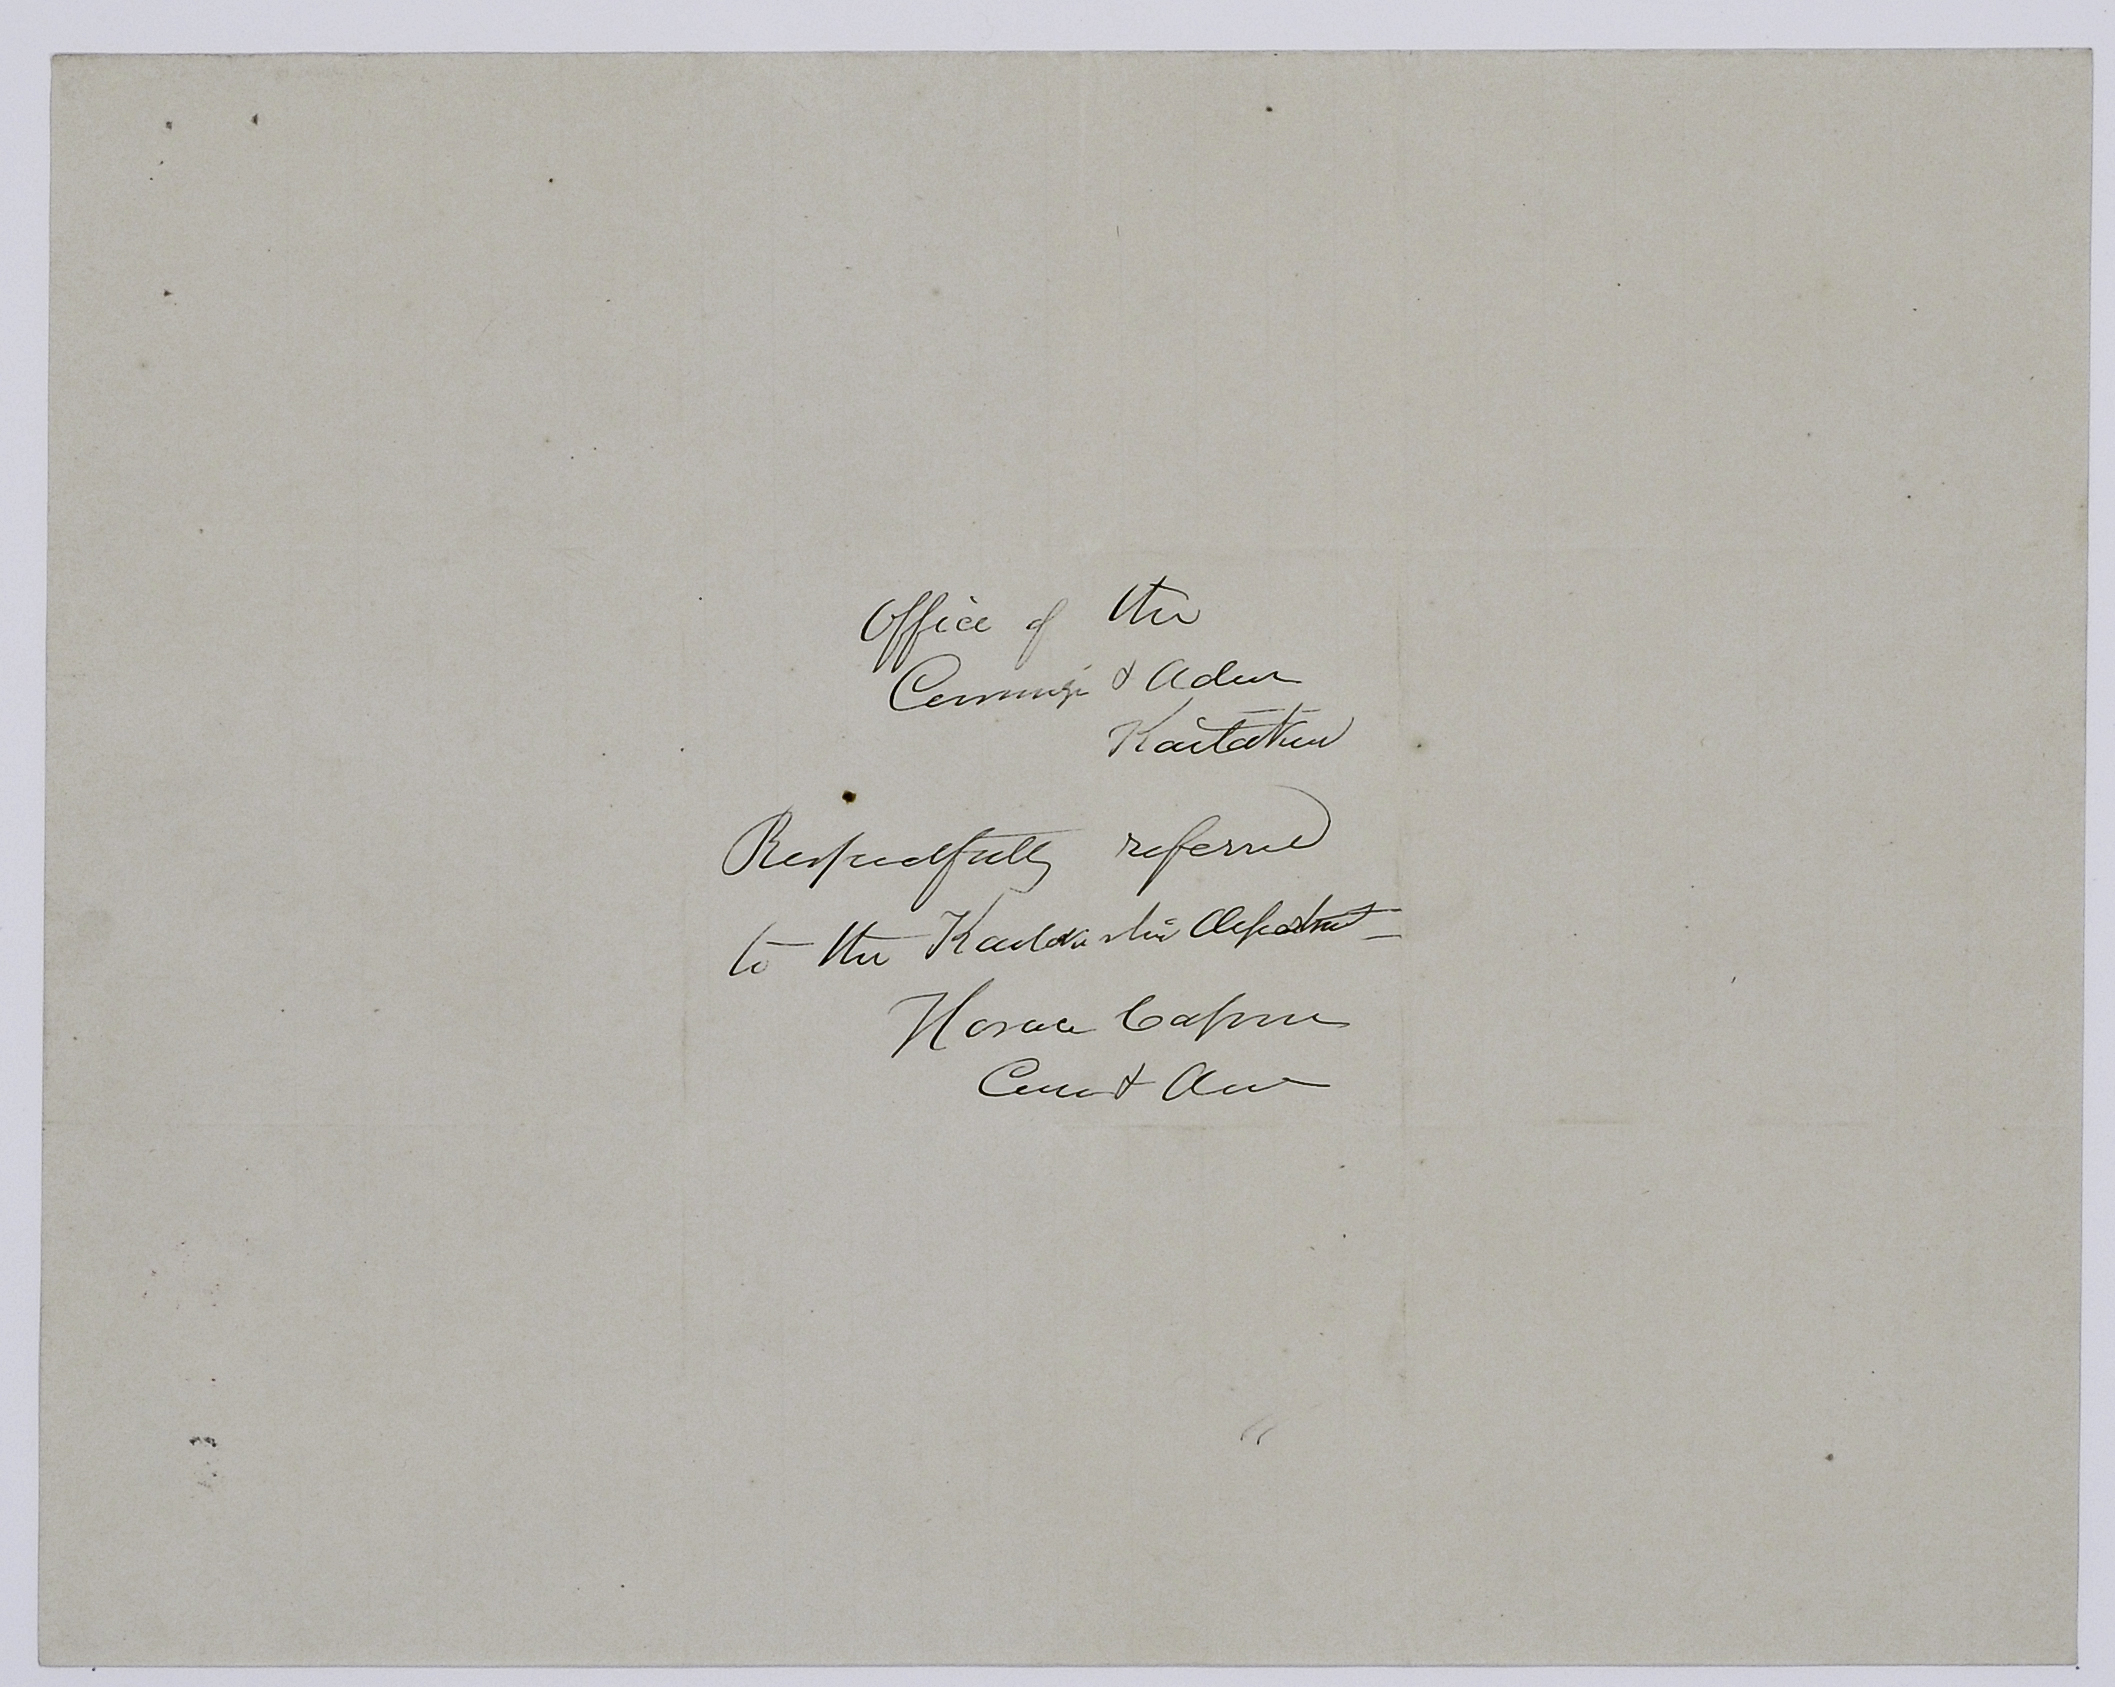 Office of the
Commis & Adv
Kaitakusi
Respectfully referred
to the Kaitakushi Department
Horace Capron
Com & Adv